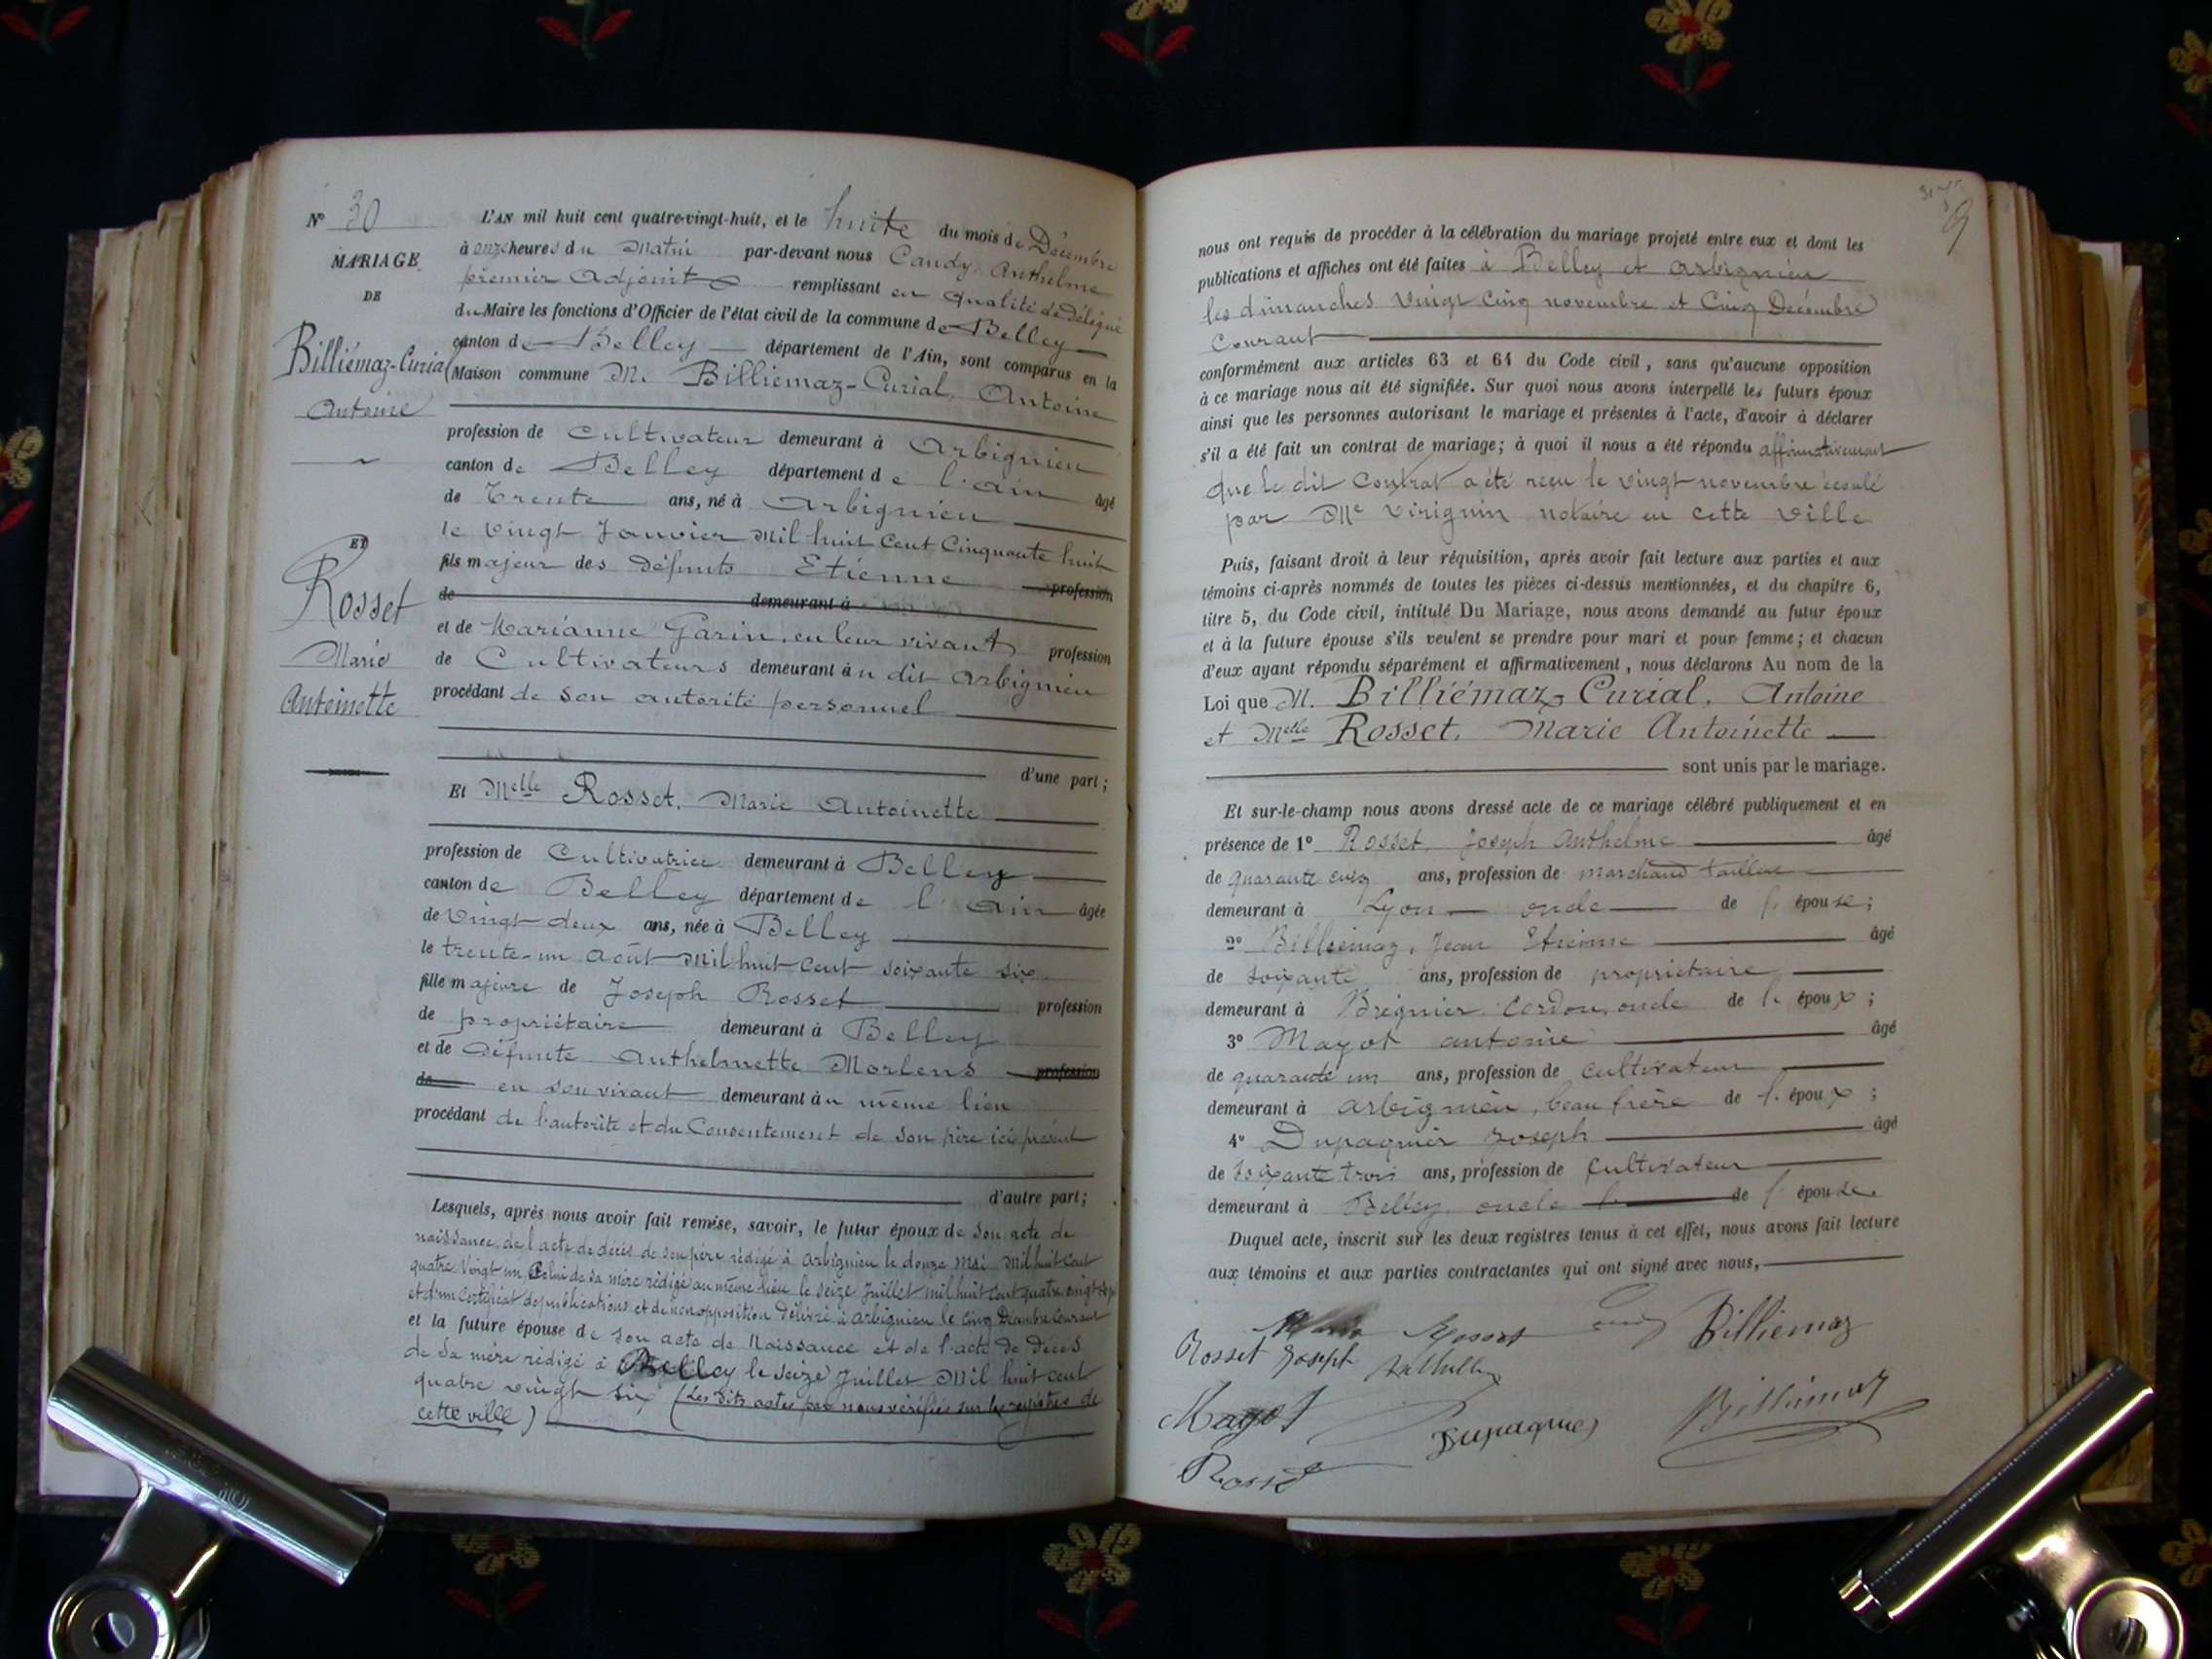 N° 30
MARIAGE
DE
Billiémaz-Curial
Antoine
ET
Rosset
Marie
Antoinette
L'AN mil huit cent quatre-vingt-huit, et le huite du mois de Décembre
à onze heures du Matin par-devant nous Candy Anthelme
premier Adjoint remplissant en qualité de délégué
du Maire les fonctions d'Officier de l'état civil de la commune de Belley
canton de Belley département de l'Ain, sont comparus en la
Maison commune M. Billiemaz-Curial, Antoine
profession de Cultivateur demeurant à Arbignieu
canton de Belley département de l'Ain âgé
de Trente ans, né à Arbignieu
le Vingt Janvier Mil huit Cent Cinquante huit
fils majeur des défunts Etienne profession
de demeurant à
et de Marianne Garin, en leur vivant profession
de Cultivateurs demeurant au dit Arbignieu
procédant de son autorité personnel
d'une part;
Et Melle Rosset, Marie Antoinette
profession de Cultivatrice demeurant à Belley
canton de Belley département de l'Ain âgée
de Vingt deux ans, née à Belley
le trente-un Août Mil huit Cent soixante six
fille majeure de Joseph Rosset profession
de propriétaire demeurant à Belley
et de Défunte Anthelmette Morlens profession
de en son vivant demeurant au même lieu
procédant de l'autorité et du Consentement de son père ici présent
d'autre part;
Lesquels, après nous avoir fait remise, savoir, le futur époux de son acte de
naissance, de l'acte de décès de son père rédigé à Arbignieu le douze Mai Mil huit Cent
quatre Vingt un, Celui de sa mère rédigé au même lieu le seize Juillet mil huit Cent quatre vingt
et d'un Certificat de publications et de non opposition délivré à Arbignieu le cinq Décembre Courant
et la future épouse de son acte de Naissance et de l'acte de Décès
de sa mère rédigé à Belley le seize Juillet Mil huit cent
quatre vingt six (Les dits actes par nous vérifiés sur les registres de
cette ville)
9
nous ont requis de procéder à la célébration du mariage projeté entre eux et dont les
publications et affiches ont été faites à Belley et Arbignieu
les dimanches Vingt Cinq novembre et Cinq Décembre
Courant
conformément aux articles 63 et 64 du Code civil, sans qu'aucune opposition
à ce mariage nous ait été signifiée. Sur quoi nous avons interpellé les futurs époux
ainsi que les personnes autorisant le mariage et présentes à l'acte, d'avoir à déclarer
s'il a été fait un contrat de mariage; à quoi il nous a été répondu affirmativement
que le dit Contrat a été reçu le vingt novembre écoulé
par Me Virignin notaire en cette Ville
Puis, faisant droit à leur réquisition, après avoir fait lecture aux parties et aux
témoins ci-après nommés de toutes les pièces ci-dessus mentionnées, et du chapitre 6,
titre 5, du Code civil, intitulé Du Mariage, nous avons demandé au futur époux
et à la future épouse s'ils veulent se prendre pour mari et pour femme; et chacun
d'eux ayant répondu séparément et affirmativement, nous déclarons Au nom de la
Loi que M. Billiémaz-Curial, Antoine
et Melle Rosset, Marie Antoinette
sont unis par le mariage.
Et sur-le-champ nous avons dressé acte de ce mariage célébré publiquement et en
présence de 1° Rosset, Joseph Anthelme âgé
de quarante cinq ans, profession de marchand tailleur
demeurant à Lyon oncle de l. épouse;
2° Billiémaz, Jean Etienne âgé
de soixante ans, profession de propriétaire
demeurant à Brégnier Cordon, oncle de l. époux;
3° Mayot antoine âgé
de quarante un ans, profession de Cultivateur
demeurant à arbignieu, beau frère de l. époux;
4° Dupagnier Joseph âgé
de soixante trois ans, profession de Cultivateur
demeurant à Belley, oncle de l. épouse.
Duquel acte, inscrit sur les deux registres tenus à cet effet, nous avons fait lecture
aux témoins et aux parties contractantes qui ont signé avec nous,
Billiemaz
Rosset Joseph
Mayot Dupagnier Billiémaz
Rosset